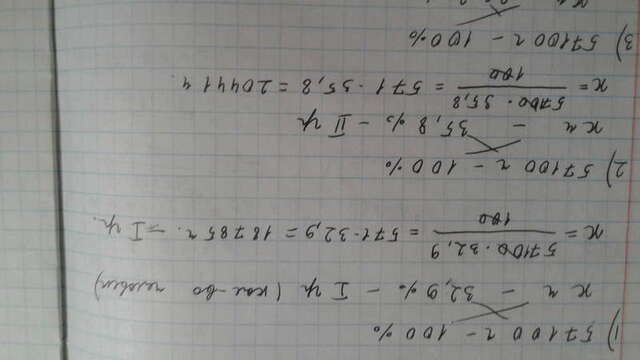 1) 57100 ч – 100 %
х ч – 32,9 % – I гр (кол-во человек)
х = 57100 · 32,9 / 100 = 571 · 32,9 = 18785 ч. – I гр.
2) 57100 ч – 100 %
х ч – 35,8 % – II гр
х = 5700 · 35,8 / 100 = 571 · 35,8 = 20441 ч.
3) 57100 ч – 100 %
х ч